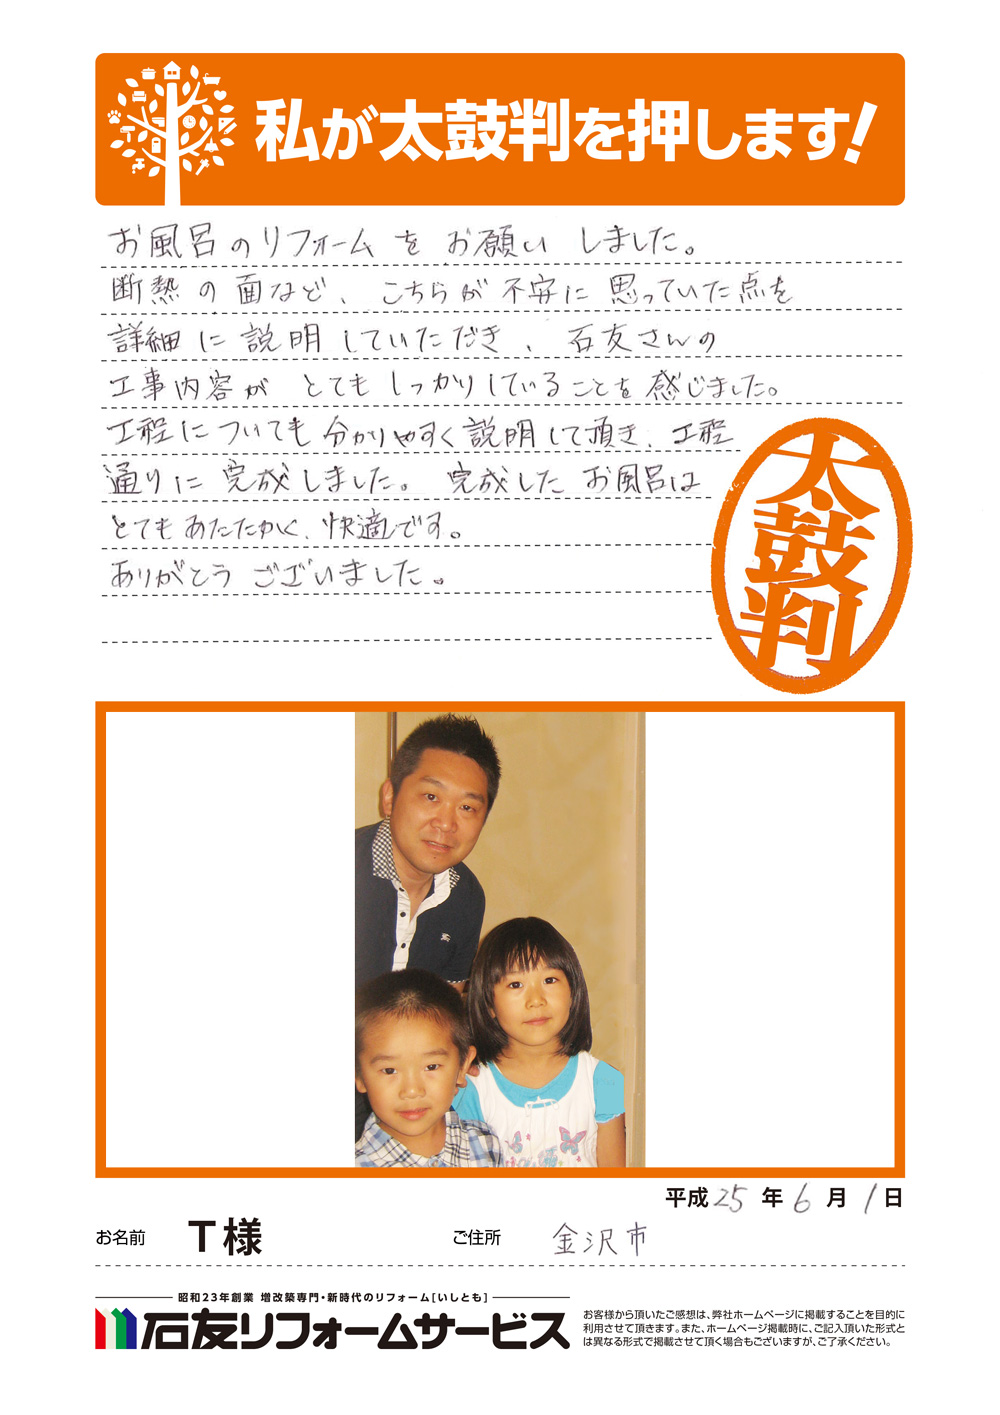 私が太鼓判を押します!
お風呂のリフォームをお願いしました。
断熱の面など、こちらが不安に思っていた点を
詳細に説明していただき、石友さんの
工事内容がとてもしっかりしていることを感じました。
工程についても分かりやすく説明して頂き、工程
通りに完成しました。完成したお風呂は
とてもあたたかく、快適です。
ありがとうございました。
太鼓判
平成25年6月1日
お名前 T様 ご住所 金沢市
昭和23年創業 増改築専門・新時代のリフォーム[いしとも]
石友リフォームサービス
お客様から頂いたご感想は、弊社ホームページに掲載することを目的に
利用させて頂きます。また、ホームページ掲載時に、ご記入頂いた形式と
は異なる形式で掲載させて頂く場合もございますが、ご了承ください。